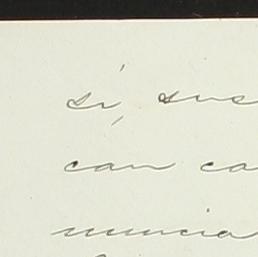 sí, sus
can ca
nuncia